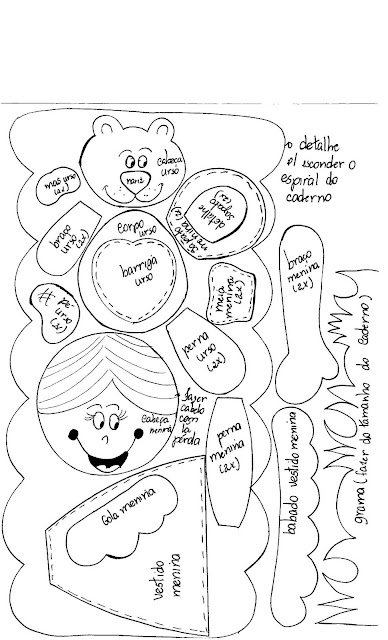 o detalhe
p/ esconder o
espiral do
caderno
cabeça
urso
nariz
mão urso
(2x)
braço
urso
(2x)
corpo
urso
barriga
urso
detalhe
sapato
sapato
menina
(2x)
meia
menina
(2x)
braço
menina
(2x)
# pé
urso
(2x)
perna
urso
(2x)
fazer
cabelo
com
lã
cabeça
menina
perna
menina
(2x)
Gola menina
vestido
menina
babado vestido menina
grama (fazer do tamanho do caderno)